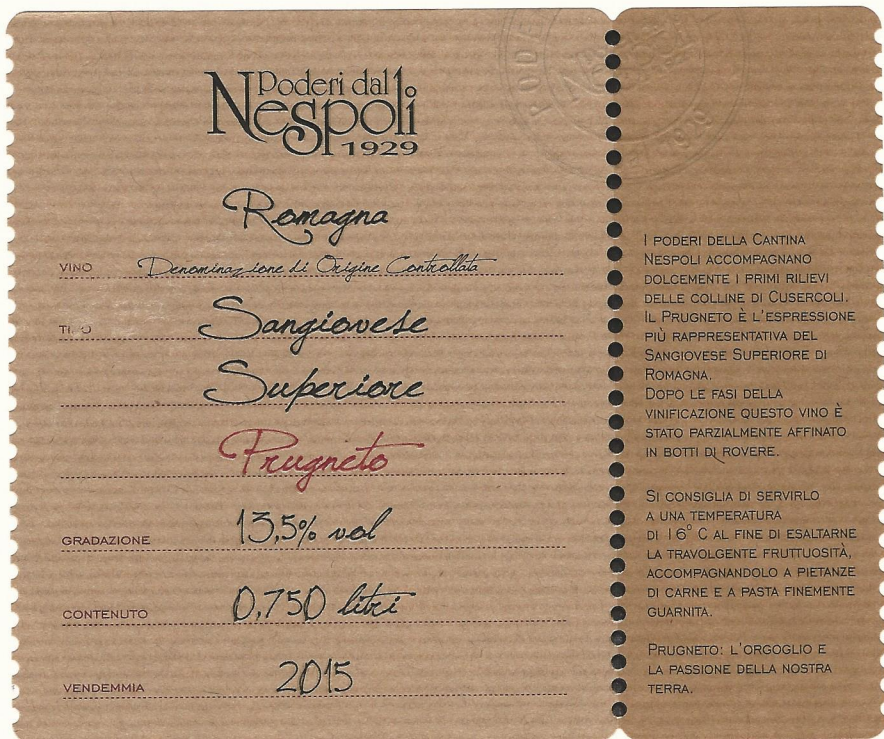 Poderi dal
Nespoli
1929
Romagna
VINO Denominazione di Origine Controllata
TIPO Sangiovese
Superiore
Prugneto
GRADAZIONE 13,5% vol
CONTENUTO 0,750 litri
VENDEMMIA 2015
I PODERI DELLA CANTINA
NESPOLI ACCOMPAGNANO
DOLCEMENTE I PRIMI RILIEVI
DELLE COLLINE DI CUSERCOLI.
IL PRUGNETO È L'ESPRESSIONE
PIÙ RAPPRESENTATIVA DEL
SANGIOVESE SUPERIORE DI
ROMAGNA.
DOPO LE FASI DELLA
VINIFICAZIONE QUESTO VINO È
STATO PARZIALMENTE AFFINATO
IN BOTTI DI ROVERE.
SI CONSIGLIA DI SERVIRLO
A UNA TEMPERATURA
DI 16° C AL FINE DI ESALTARNE
LA TRAVOLGENTE FRUTTUOSITÀ,
ACCOMPAGNANDOLO A PIETANZE
DI CARNE E A PASTA FINEMENTE
GUARNITA.
PRUGNETO: L'ORGOGLIO E
LA PASSIONE DELLA NOSTRA
TERRA.